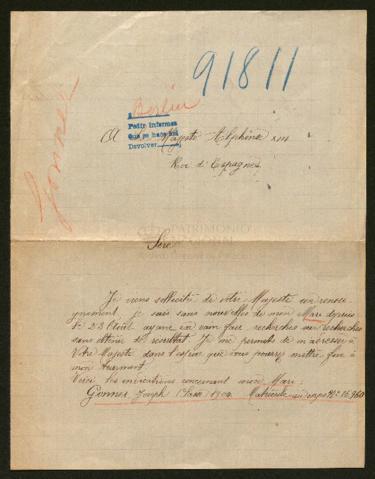 91811
Berlin
Gonnet
Pedir informes
que se hace así
Devolver
A Majesté Alphonse XIII
Roi d'Espagnes
PATRIMONIO
Sire
Je viens sollicité de votre Majesté un rensei-
gnement, je suis sans nouvelles de mon Mari depuis
le 23 Août ayant en vain fait recherches sur recherches
sans obtenir de résultat je me permets de m'adresser à
Votre Majesté dans l'espoir que vous pourrez mettre fin à
mon tourment.
Voici les indications concernant mon Mari:
Gonnet Joseph Classe 1904 Matricule au corps N° 16.960